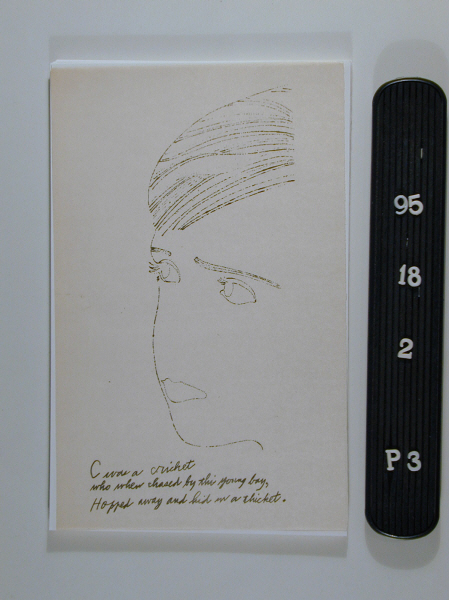 C was a cricket
who when chased by this young boy,
Hopped away and hid in a thicket.
95
18
2
P 3